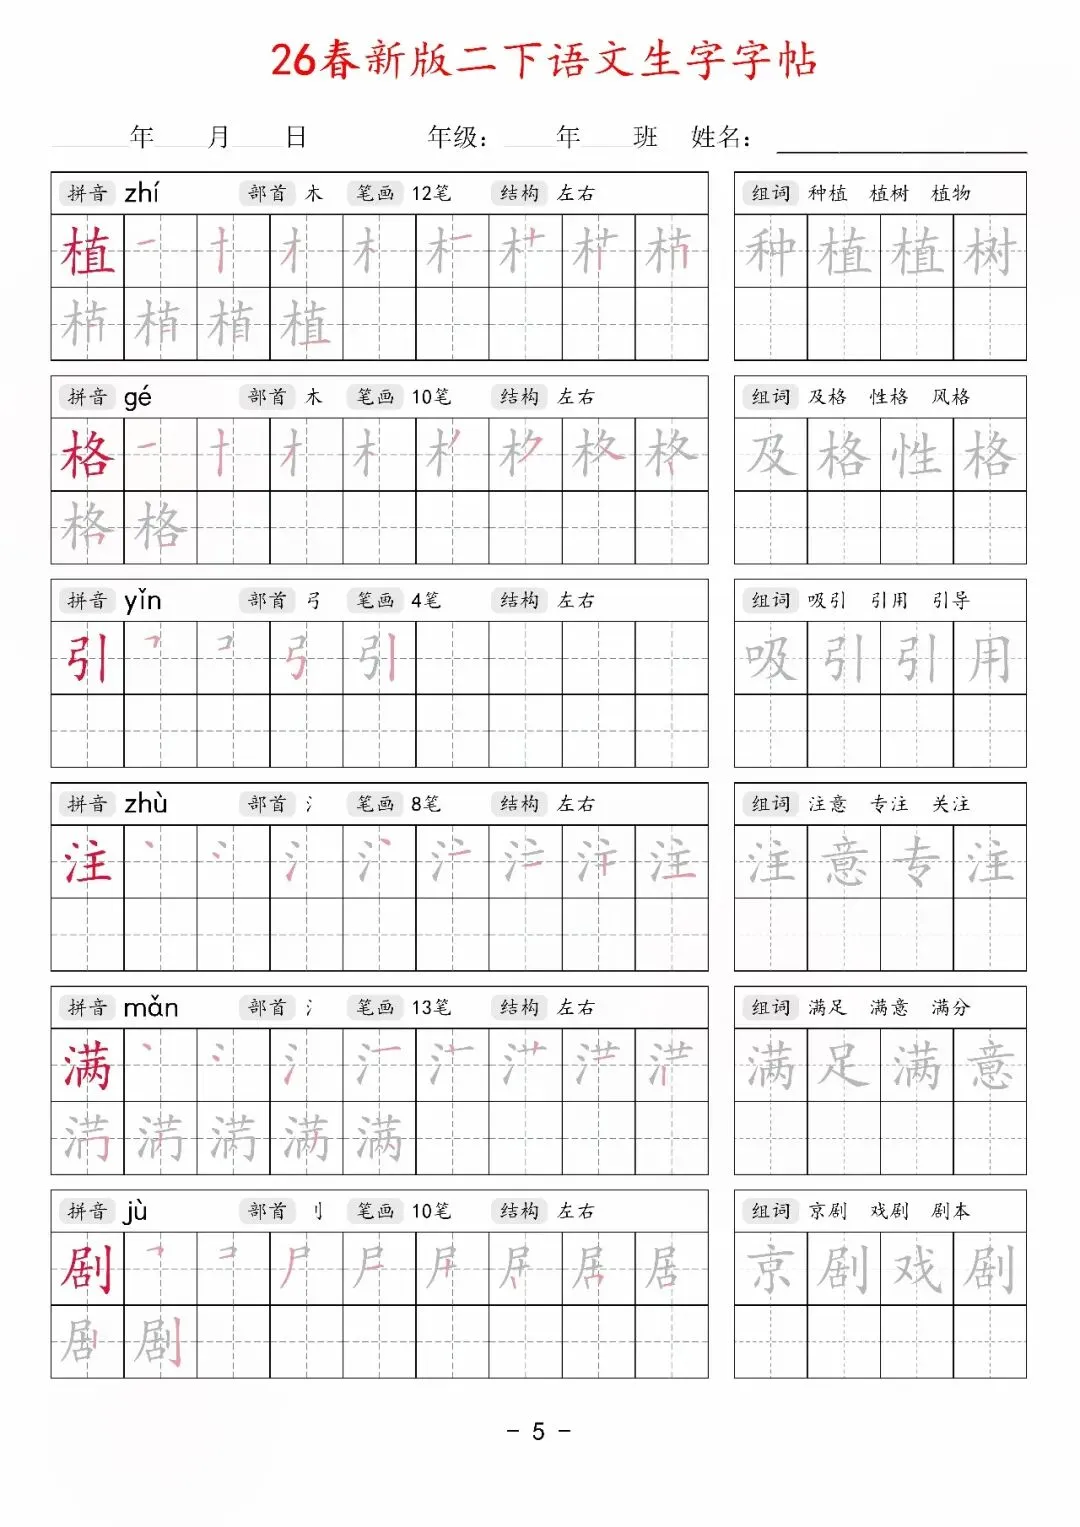 26春新版二下语文生字字帖
年 月 日 年级： 年 班 姓名：
拼音 zhí 部首 木 笔画 12笔 结构 左右
组词 种植 植树 植物
植
种植植树
植
拼音 gé 部首 木 笔画 10笔 结构 左右
组词 及格 性格 风格
格
及格性格
格格
拼音 yǐn 部首 弓 笔画 4笔 结构 左右
组词 吸引 引用 引导
引 引
吸引引用
拼音 zhù 部首 氵 笔画 8笔 结构 左右
组词 注意 专注 关注
注 注
注意专注
拼音 mǎn 部首 氵 笔画 13笔 结构 左右
组词 满足 满意 满分
满
满足满意
满
拼音 jù 部首 刂 笔画 10笔 结构 左右
组词 京剧 戏剧 剧本
剧
京剧戏剧
剧
- 5 -